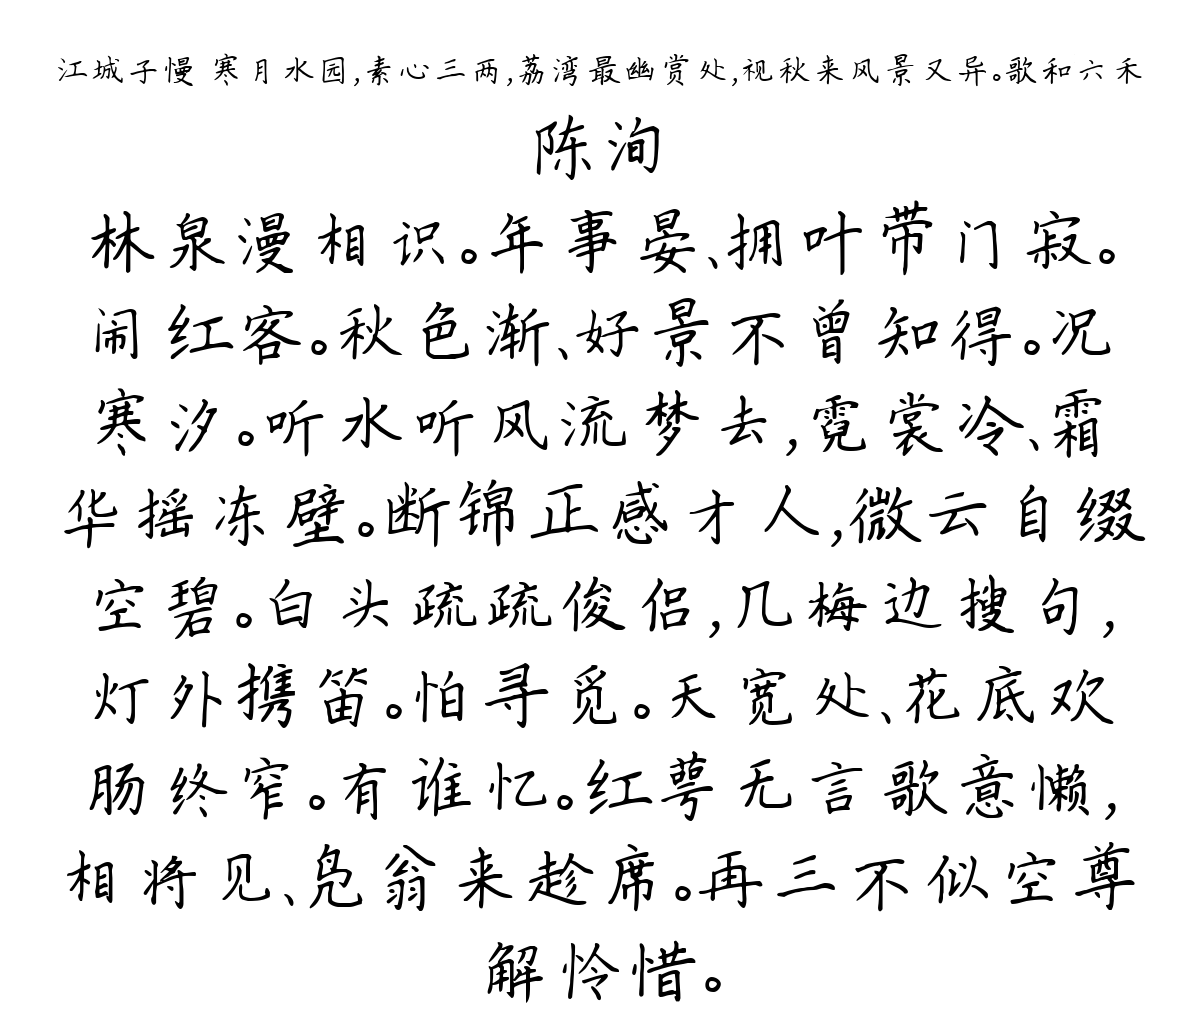 江城子慢 寒月水园,素心三两,荔湾最幽赏处,视秋来风景又异。歌和六禾
陈洵
林泉漫相识。年事晏、拥叶带门寂。
闹红客。秋色渐、好景不曾知得。况
寒汐。听水听风流梦去,霓裳冷、霜
华摇冻壁。断锦正感才人,微云自缀
空碧。白头疏疏俊侣,几梅边搜句,
灯外携笛。怕寻觅。天宽处、花底欢
肠终窄。有谁忆。红萼无言歌意懒,
相将见、凫翁来趁席。再三不似空尊
解怜惜。